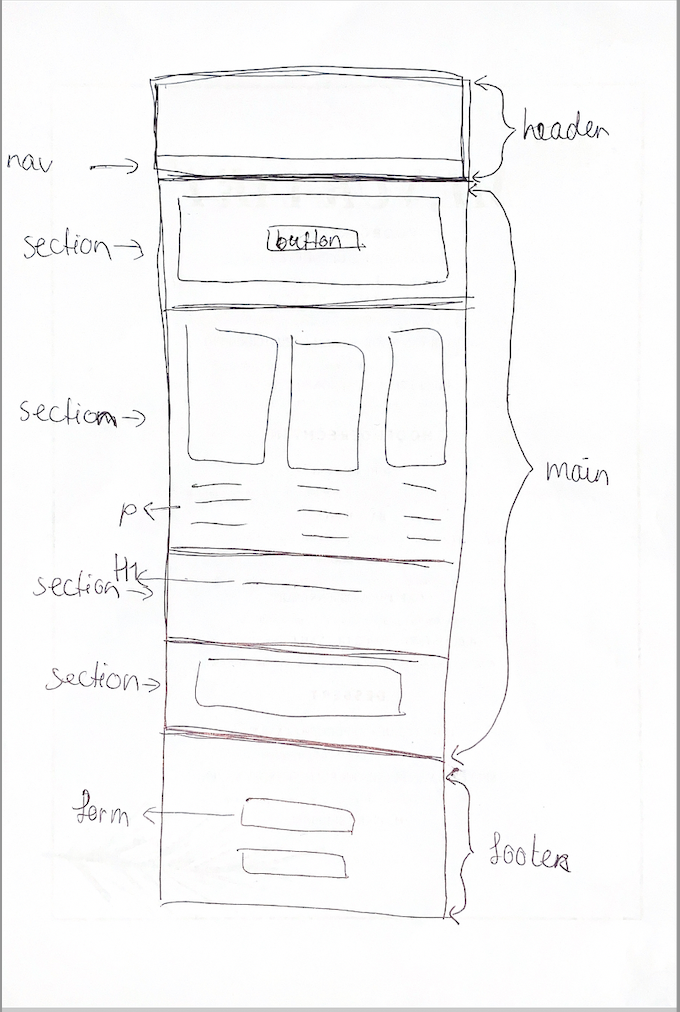 header
nav
section
button
section
main
p
H1
section
section
form
footer